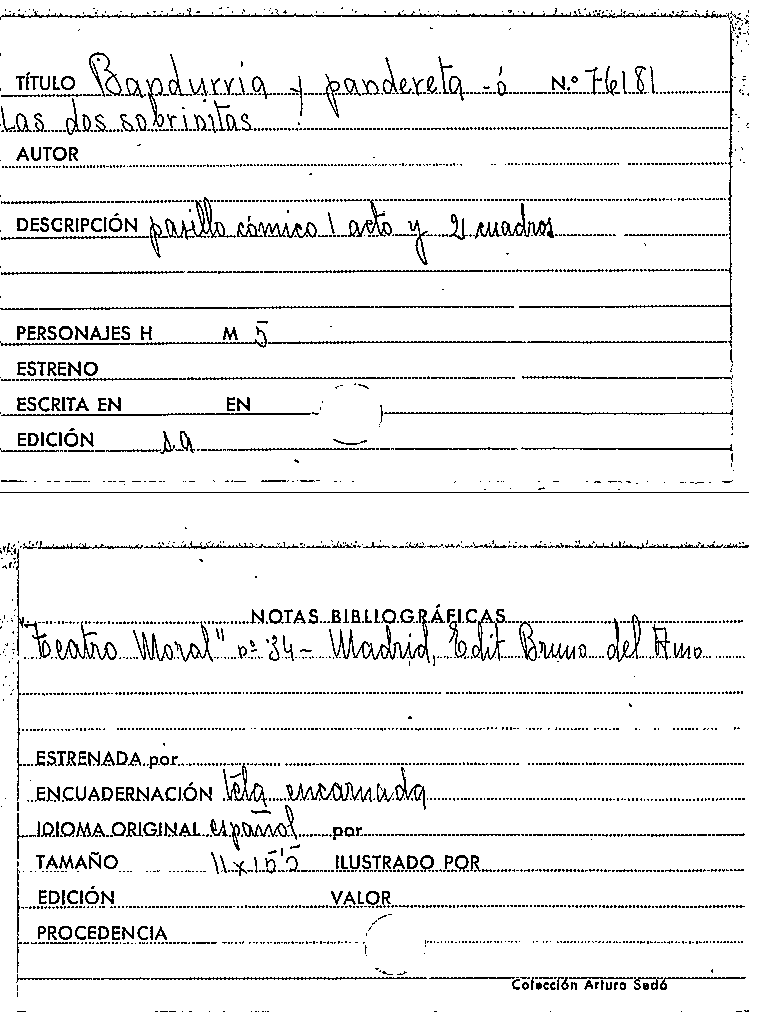 TÍTULO Bandurria y pandereta - ó N.º 76181
Las dos sobrinitas
AUTOR
DESCRIPCIÓN pasillo cómico 1 acto y 2 cuadros
PERSONAJES H M 5
ESTRENO
ESCRITA EN EN
EDICIÓN s.a
NOTAS BIBLIOGRÁFICAS
"Teatro Moral" nº 34 - Madrid, Edit Bruno del Amo
ESTRENADA por
ENCUADERNACIÓN tela encarnada
IDIOMA ORIGINAL español por
TAMAÑO 11 x 15'5 ILUSTRADO POR
EDICIÓN VALOR
PROCEDENCIA
Colección Arturo Sedó